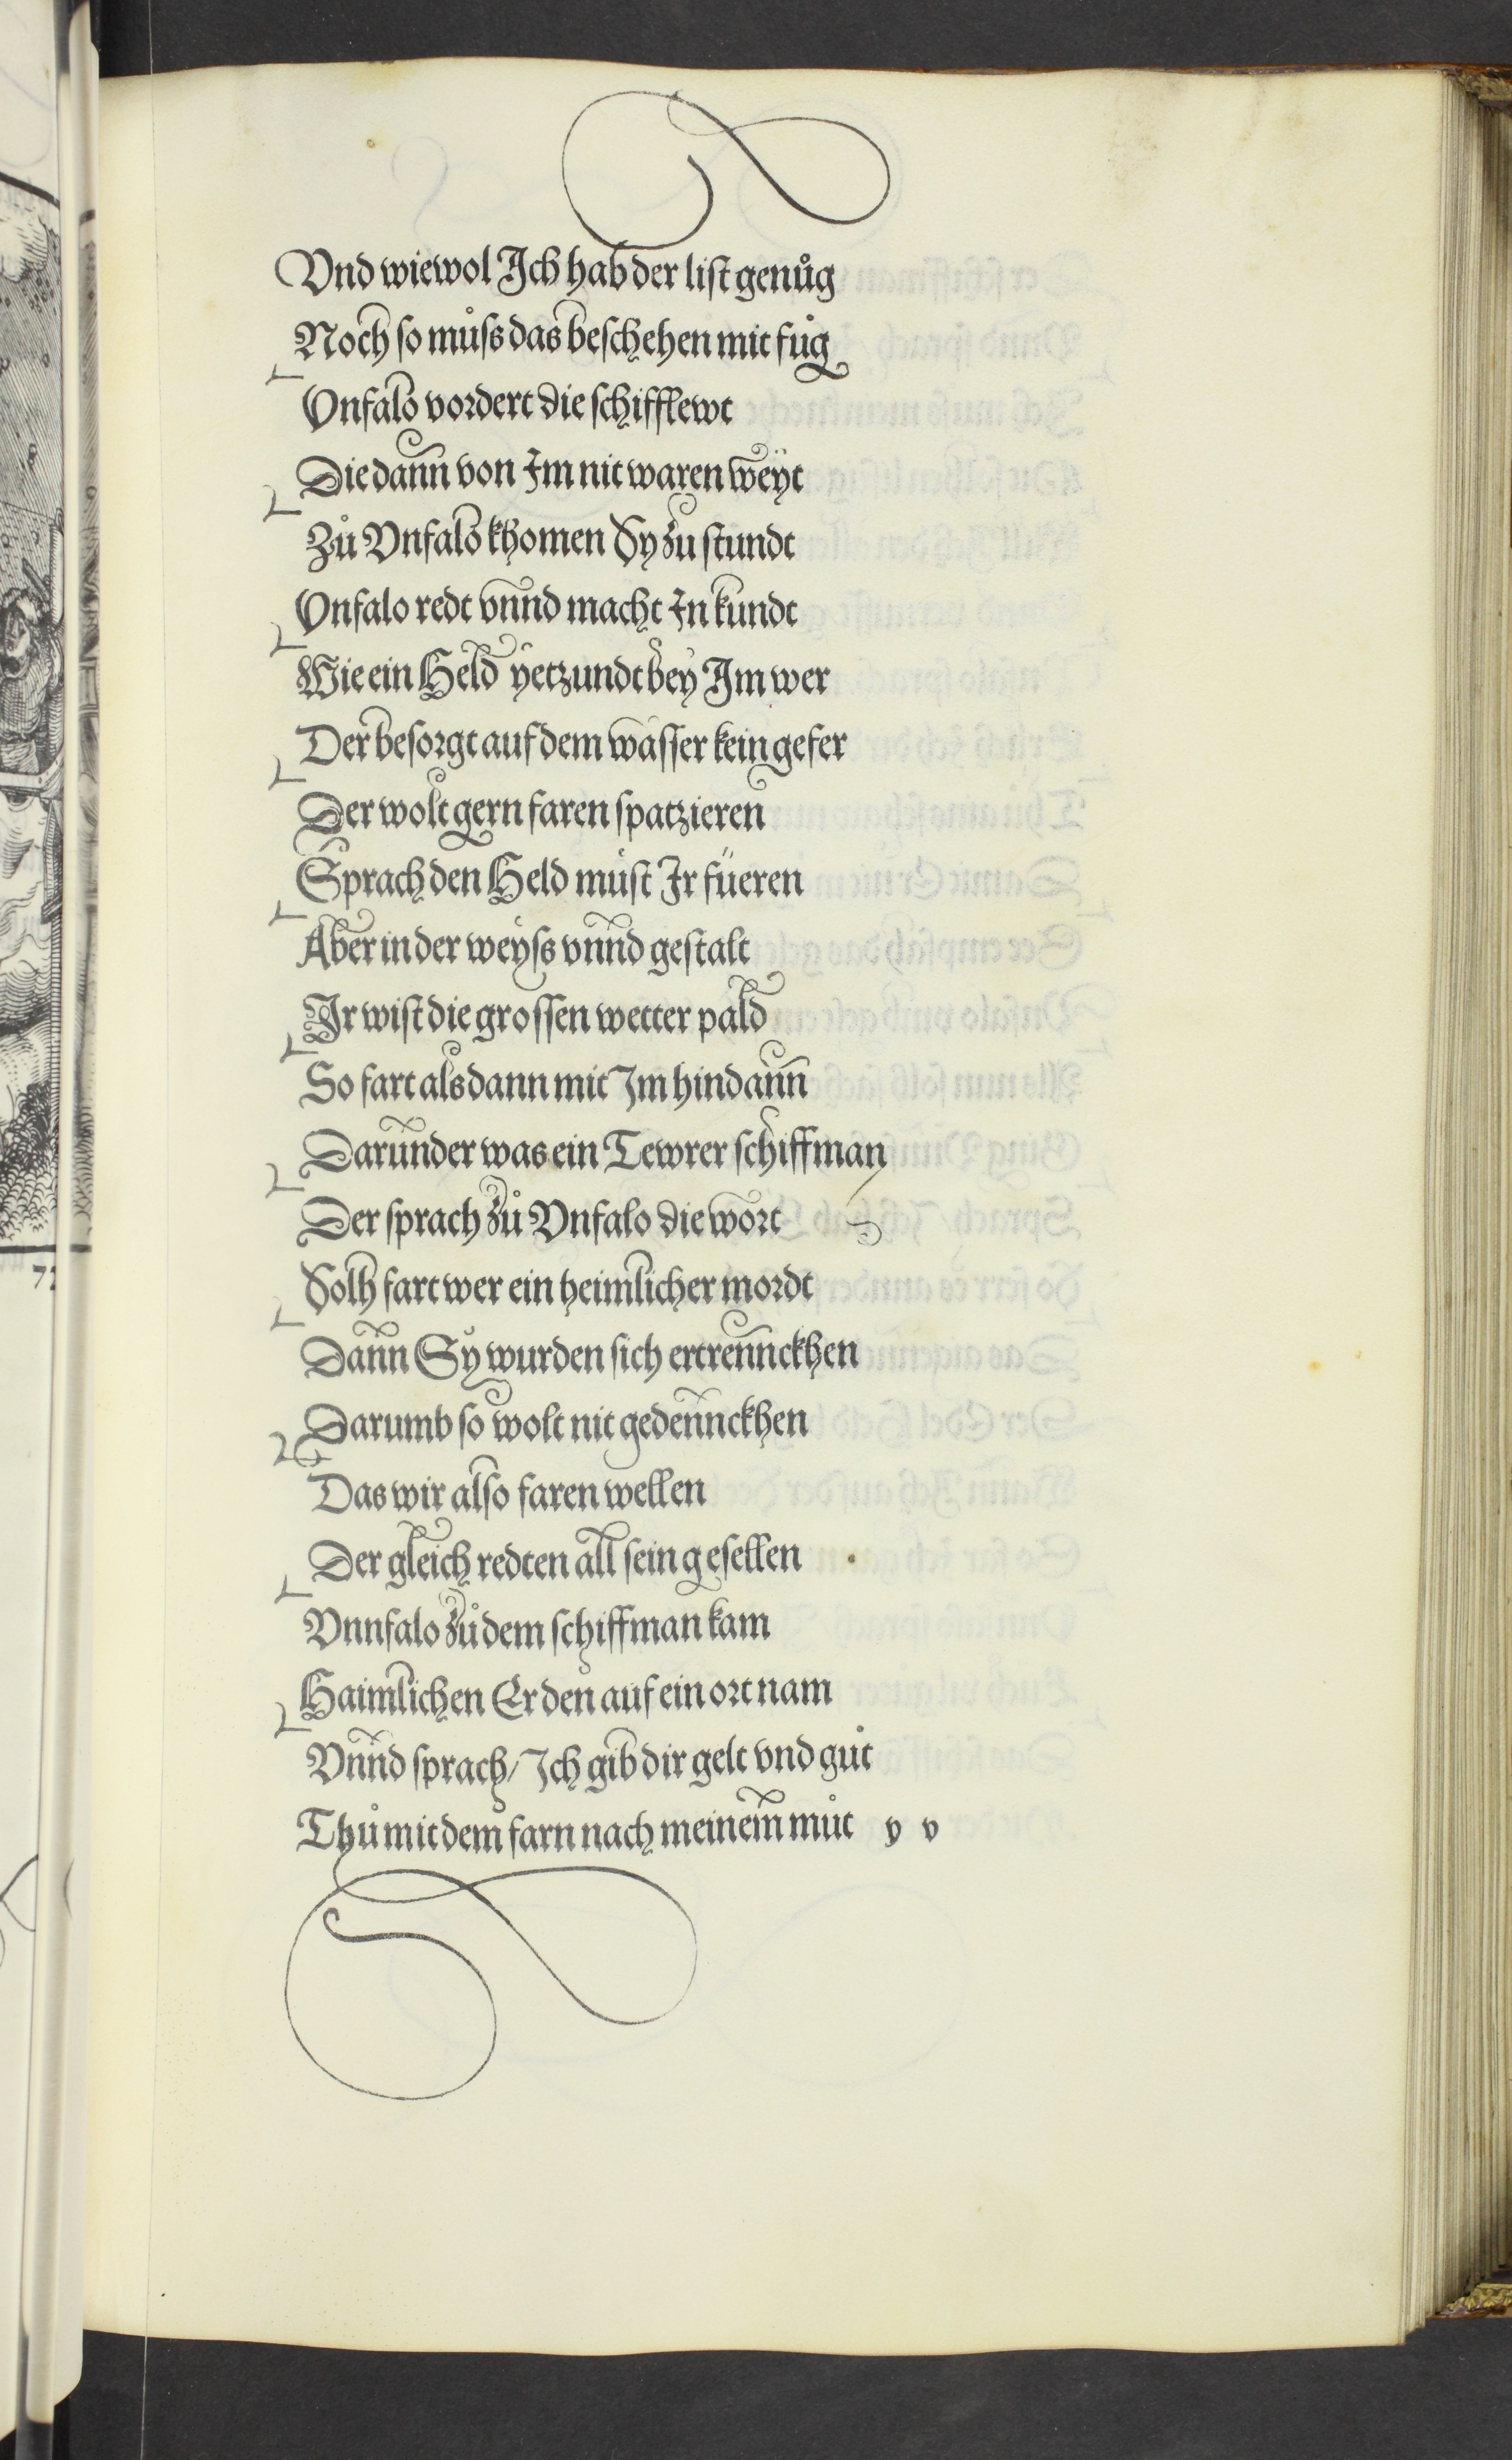 Vnd wiewol Ich hab der list genůg
Noch so můſs das beschehen mit fůg
Vnfalo vordert die schifflewt
Die dann von Im nit waren weyt
Zů Vnfalo khomen Sy zu stundt
Vnfalo redt vnnd macht In kundt
Wie ein Held yetzundt bey Im wer
Der besorgt auf dem wasser kein gefer
Der wolt gern faren spatzieren
Sprach den Held můst Ir füeren
Aber in der weyſs vnnd gestalt
Ir wist die grossen wetter pald
So fart alsdann mit Im hindann
Darunder was ein Tewrer schiffman
Der sprach zů Vnfalo die wort
Solh fart wer ein heimlicher mordt
Dann Sy wurden sich ertrennckhen
Darumb so wolt nit gedennckhen
Das wir also faren wellen
Der gleich redten all sein gesellen
Vnnfalo zů dem schiffman kam
Haimlichen Er den auf ein ort nam
Vnnd sprach / Ich gib dir gelt vnd gůt
Thů mit dem farn nach meinem můt y v